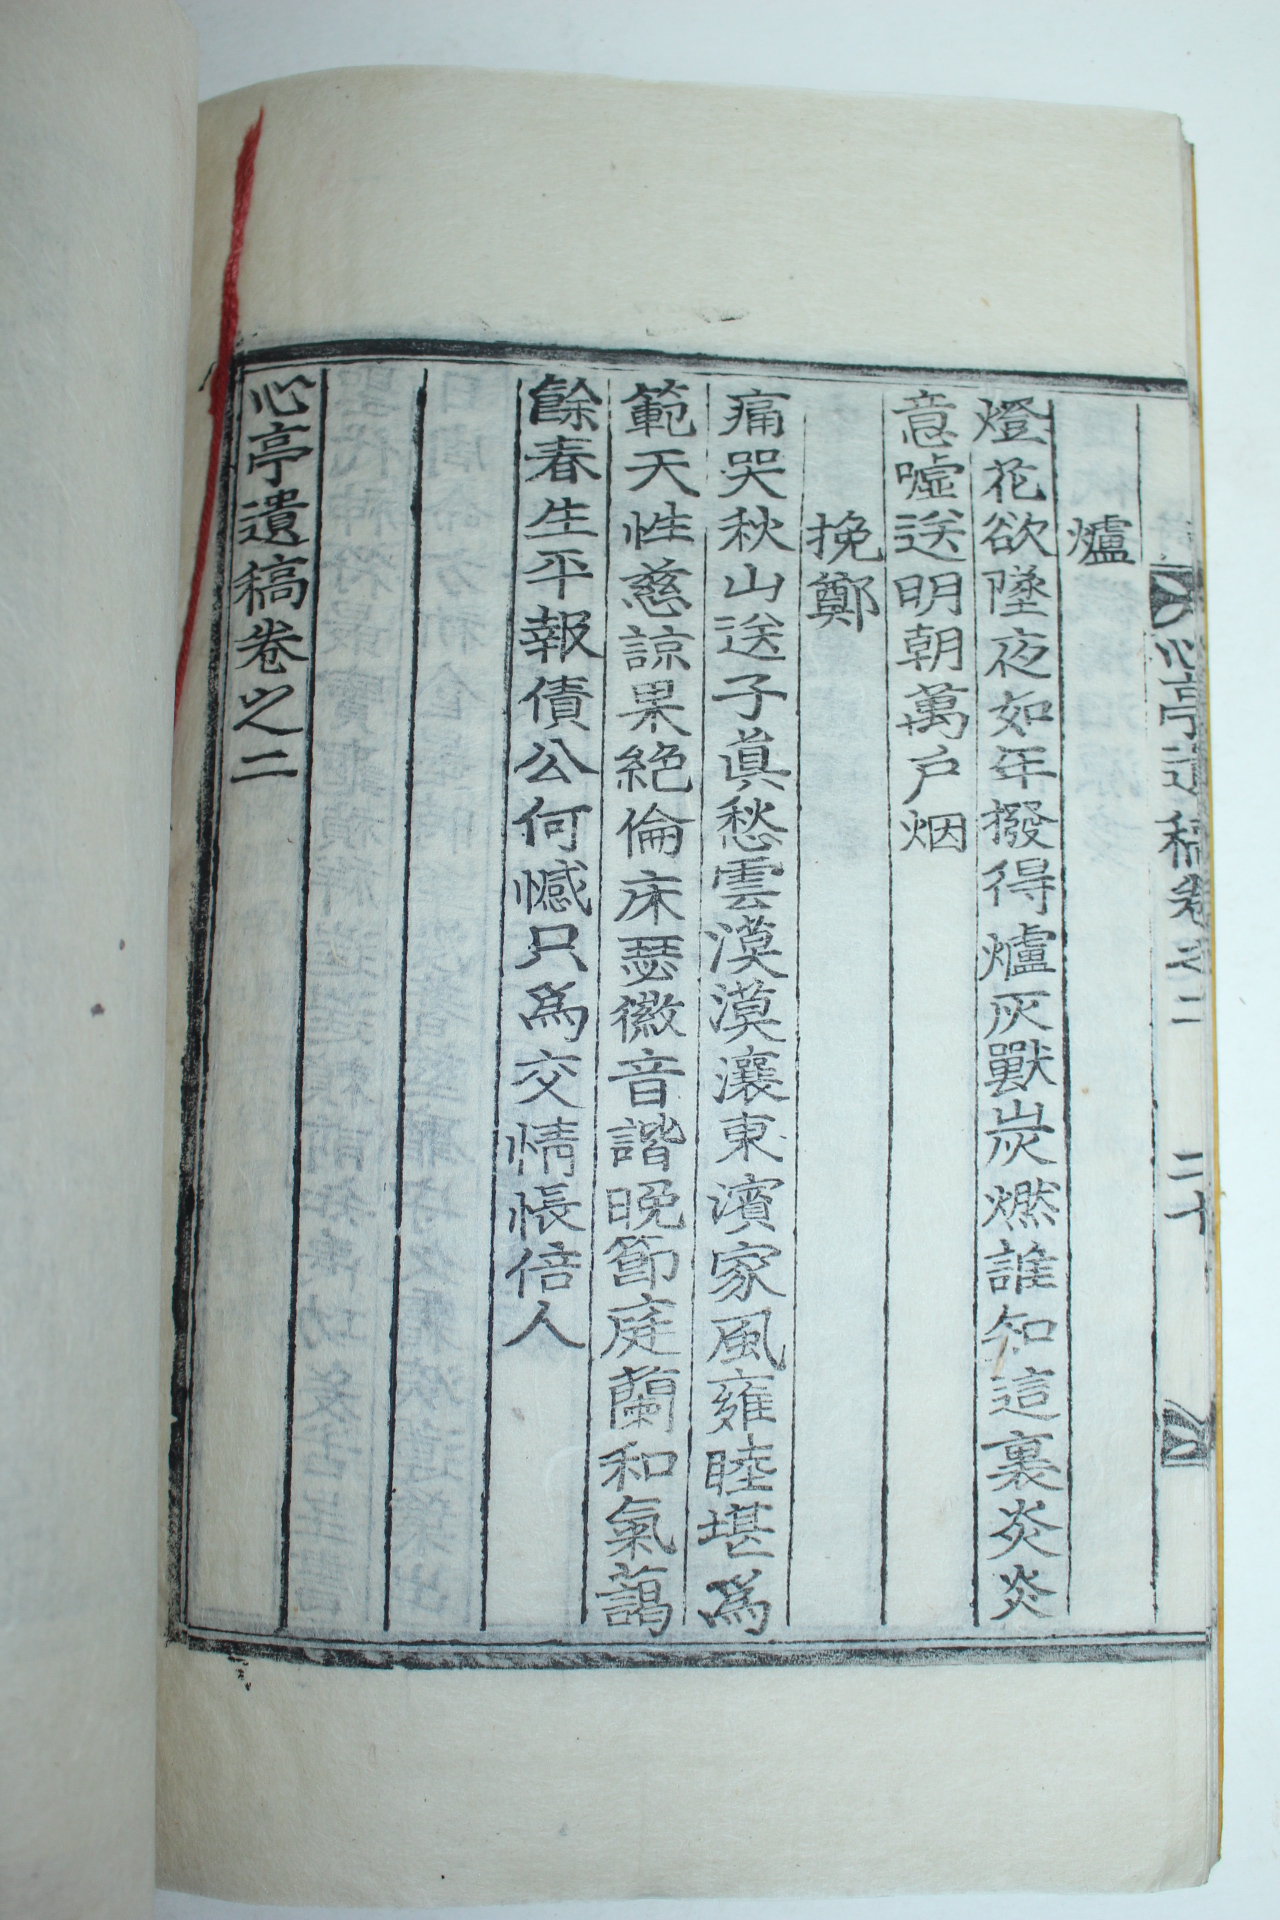 心亭遺稿卷之二 二十
爐
燈花欲墜夜如年撥得爐灰獸炭燃誰知這裏炎炎
意噓送明朝萬戶烟
挽鄭
痛哭秋山送子眞愁雲漠漠瀼東濱家風雍睦堪爲
範天性慈諒果絶倫床瑟徽音諧晚節庭蘭和氣藹
餘春生平報債公何憾只爲交情悵倍人
心亭遺稿卷之二